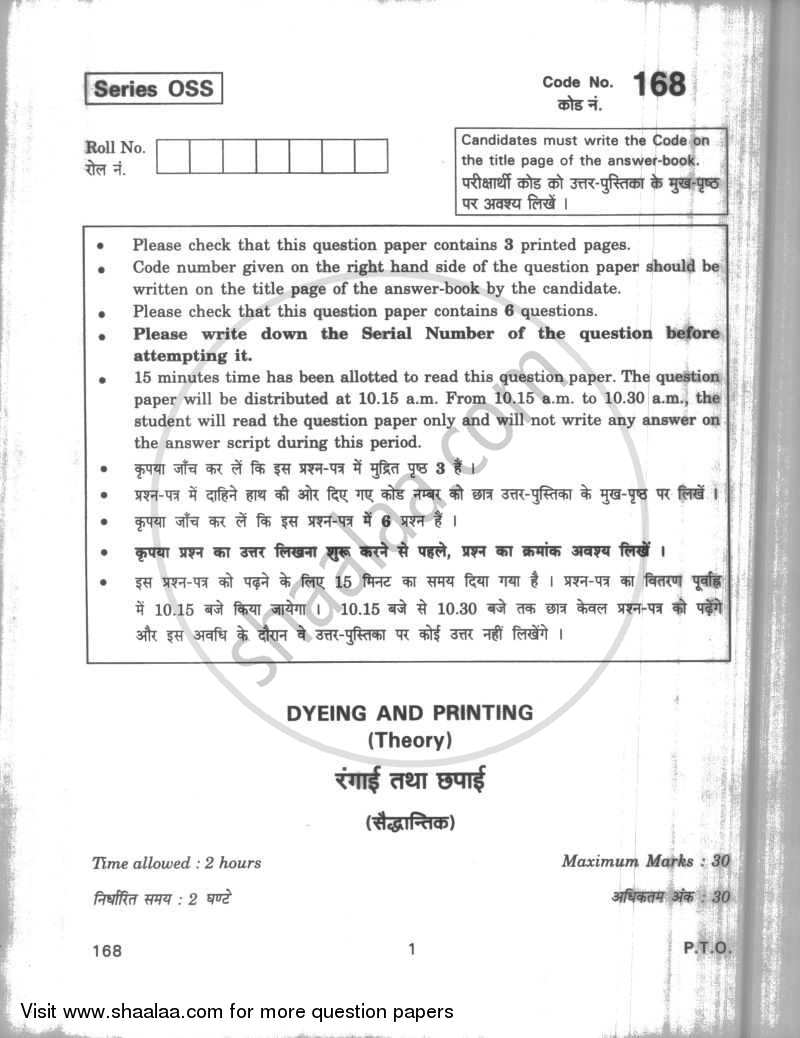 Series OSS
Code No. 168
कोड नं.
Roll No.
रोल नं.
Candidates must write the Code on
the title page of the answer-book.
परीक्षार्थी कोड को उत्तर-पुस्तिका के मुख-पृष्ठ
पर अवश्य लिखें ।
• Please check that this question paper contains 3 printed pages.
• Code number given on the right hand side of the question paper should be
written on the title page of the answer-book by the candidate.
• Please check that this question paper contains 6 questions.
• Please write down the Serial Number of the question before
attempting it.
• 15 minutes time has been allotted to read this question paper. The question
paper will be distributed at 10.15 a.m. From 10.15 a.m. to 10.30 a.m., the
student will read the question paper only and will not write any answer on
the answer script during this period.
• कृपया जाँच कर लें कि इस प्रश्न-पत्र में मुद्रित पृष्ठ 3 हैं ।
• प्रश्न-पत्र में दाहिने हाथ की ओर दिए गए कोड नम्बर को छात्र उत्तर-पुस्तिका के मुख-पृष्ठ पर लिखें ।
• कृपया जाँच कर लें कि इस प्रश्न-पत्र में 6 प्रश्न हैं ।
• कृपया प्रश्न का उत्तर लिखना शुरू करने से पहले, प्रश्न का क्रमांक अवश्य लिखें ।
• इस प्रश्न-पत्र को पढ़ने के लिए 15 मिनट का समय दिया गया है । प्रश्न-पत्र का वितरण पूर्वाह्न
में 10.15 बजे किया जायेगा । 10.15 बजे से 10.30 बजे तक छात्र केवल प्रश्न-पत्र को पढ़ेंगे
और इस अवधि के दौरान वे उत्तर-पुस्तिका पर कोई उत्तर नहीं लिखेंगे ।
shaalaa.com
DYEING AND PRINTING
(Theory)
रंगाई तथा छपाई
(सैद्धान्तिक)
Time allowed : 2 hours
Maximum Marks : 30
निर्धारित समय : 2 घण्टे
अधिकतम अंक : 30
168
1
P.T.O.
Visit www.shaalaa.com for more question papers